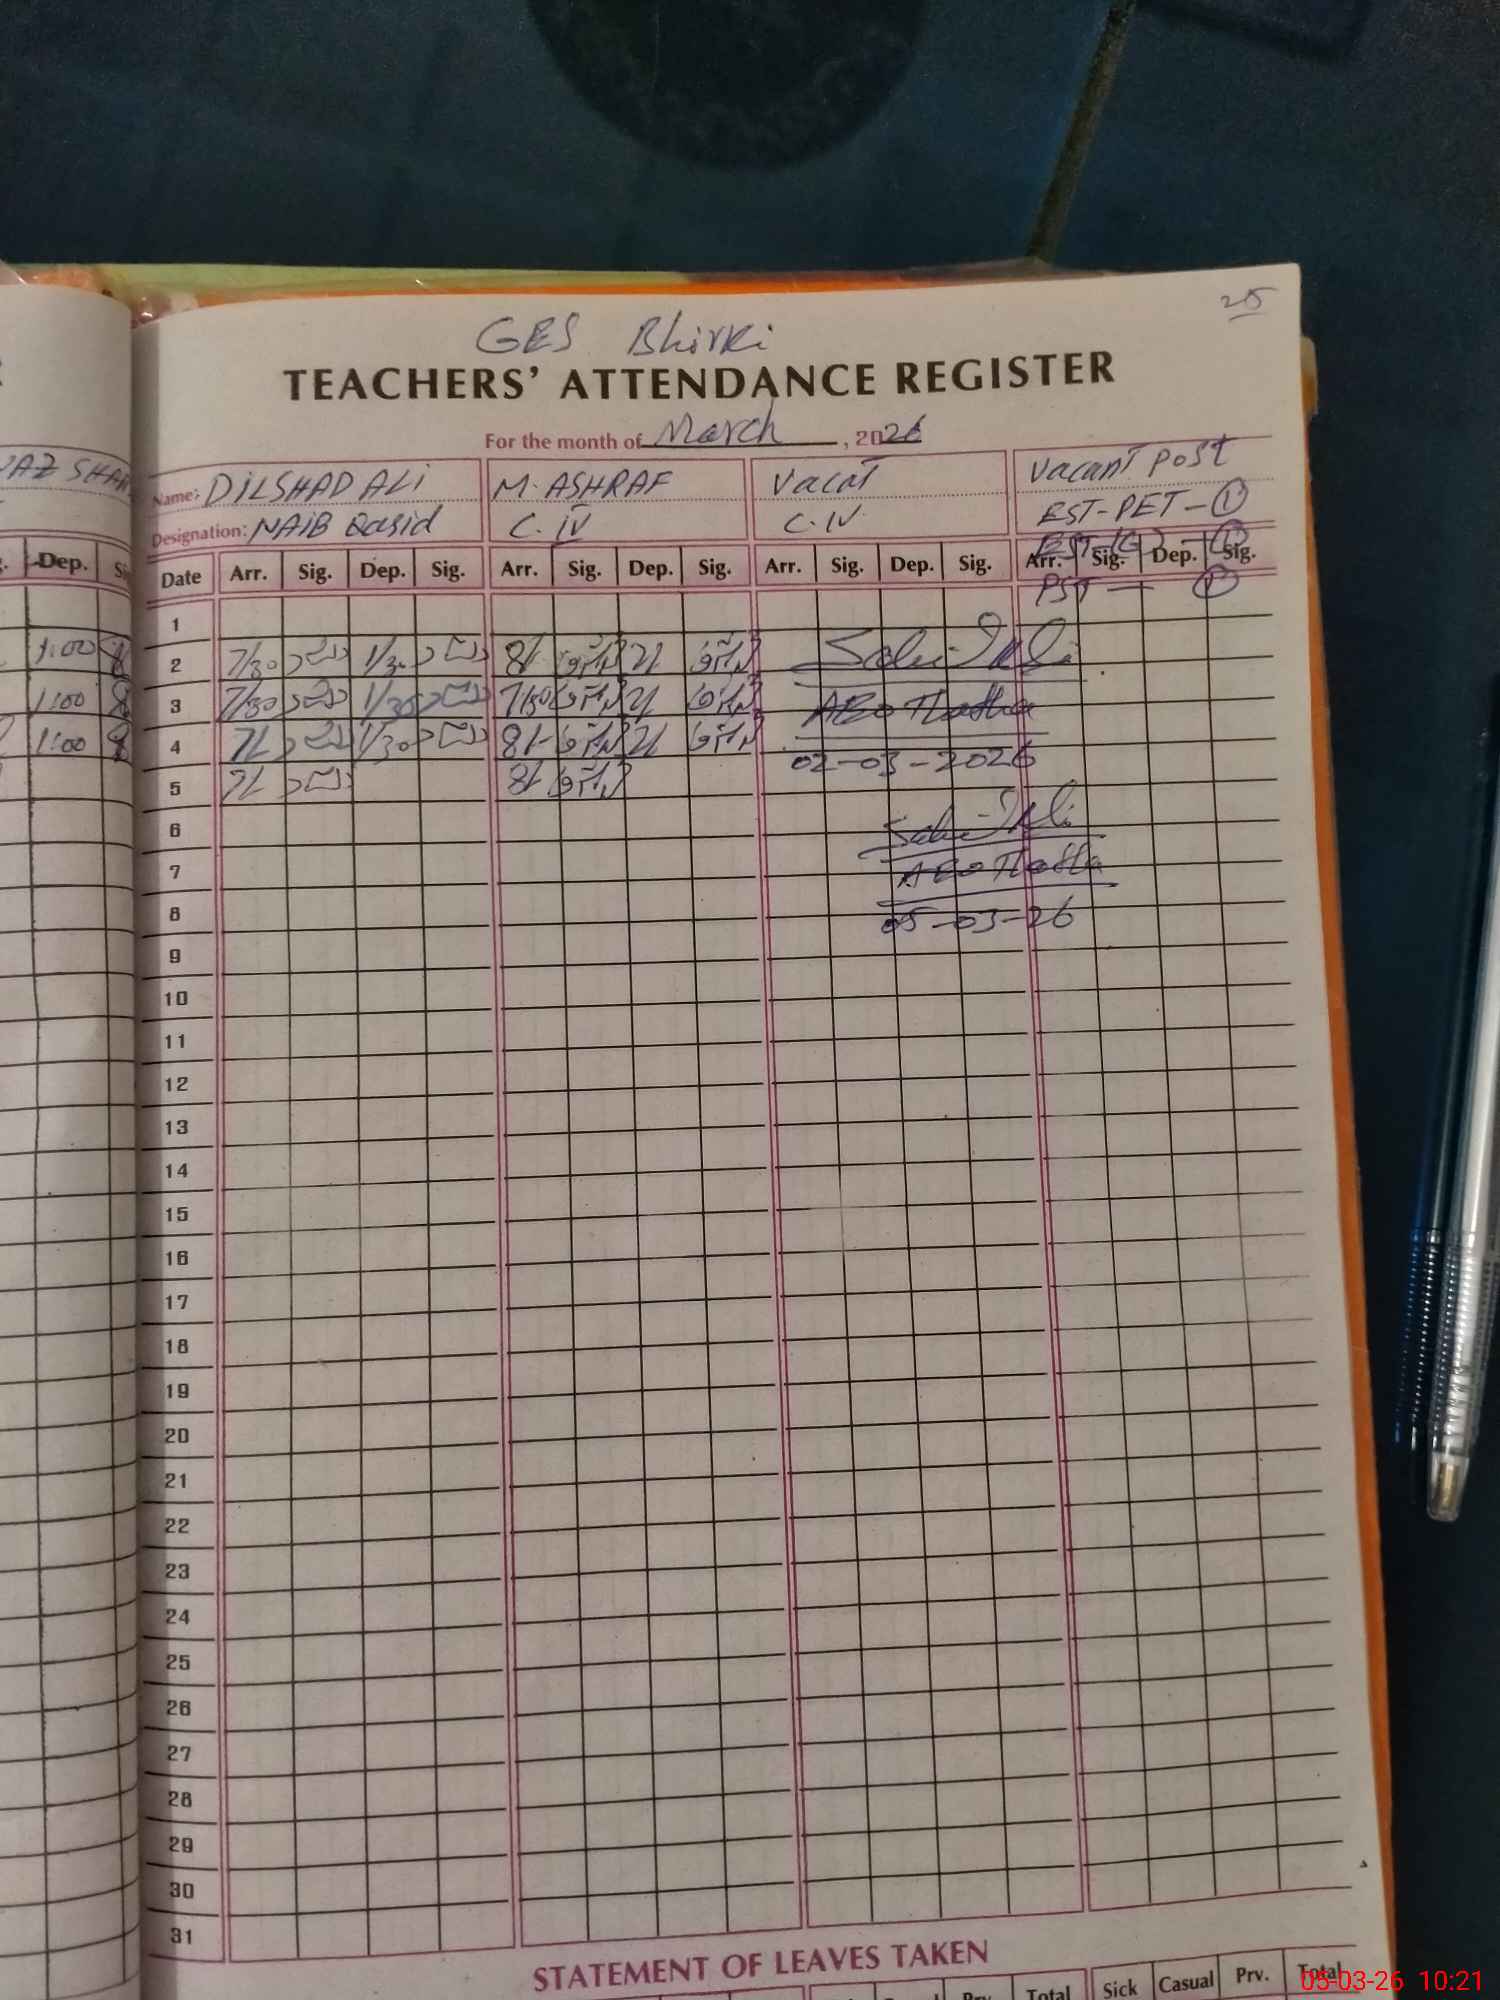 25
GES Bhirki
TEACHERS' ATTENDANCE REGISTER
For the month of March, 2026
Name: DILSHAD ALi M. ASHRAF Vacat Vacant Post
Designation: NAIB Qasid C. IV C. IV EST-PET - 1
Date Arr. Sig. Dep. Sig. Arr. Sig. Dep. Sig. Arr. Sig. Dep. Sig. Arr. Sig. Dep. Sig.
PST - 1
Dep.
1
1:00 2 7/30 1/30 8/- 2/
1:00 3 7/30 1/30 7/50 2/
ABO
1:00 4 7/ 1/30 8/- 2/
02-03-2026
5 7/ 8/
6
7
ABO
8
05-03-26
9
10
11
12
13
14
15
16
17
18
19
20
21
22
23
24
25
26
27
28
29
30
31
STATEMENT OF LEAVES TAKEN
Prv. Total Sick Casual Prv. Total
05-03-26 10:21